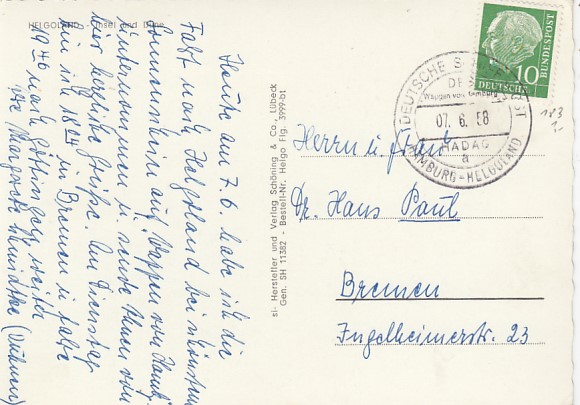 HELGOLAND - Insel und Düne
Heute am 7.6. habe ich die
Fahrt nach Helgoland bei schönstem
Sonnenschein auf "Wappen von Hambg."
unternommen u. sende Ihnen von
hier herzliche Grüße. Am Dienstag
bin ich 18 04 in Bremen u. fahre
19 46 nach Göttingen weiter
Ihre Margarete
si- Hersteller und Verlag Schöning & Co., Lübeck
Gen. SH 11382 - Bestell-Nr. Helgo Flg. 3999-01
DEUTSCHE BUNDESPOST
10
DEUTSCHE
Wappen von Hamburg
07. 6. 58
HADAG
a
HAMBURG-HELGOLAND
Herrn u. Frau
Dr. Hans Paul
Bremen
Ingelheimerstr. 23